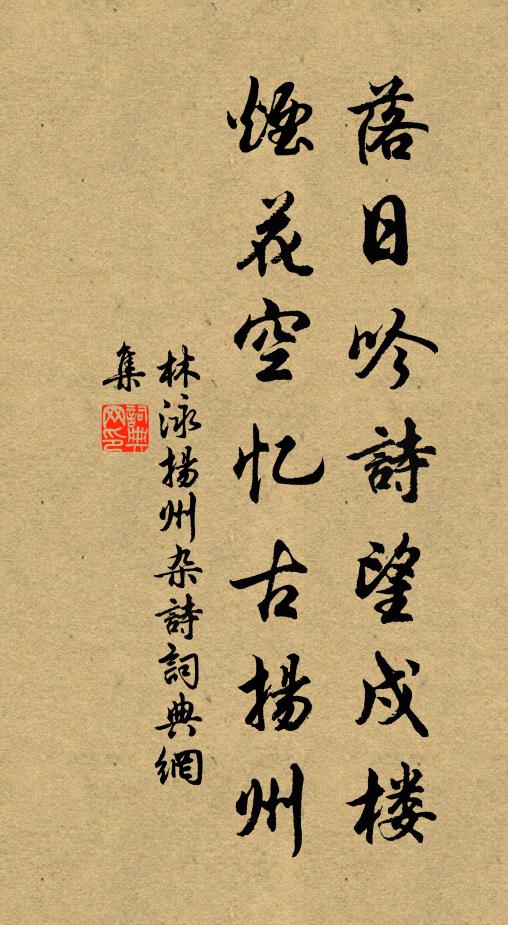 落日吟詩望戍楼
煙花空忆古揚州
林泳揚州杂詩詞典網
集
詞典网印